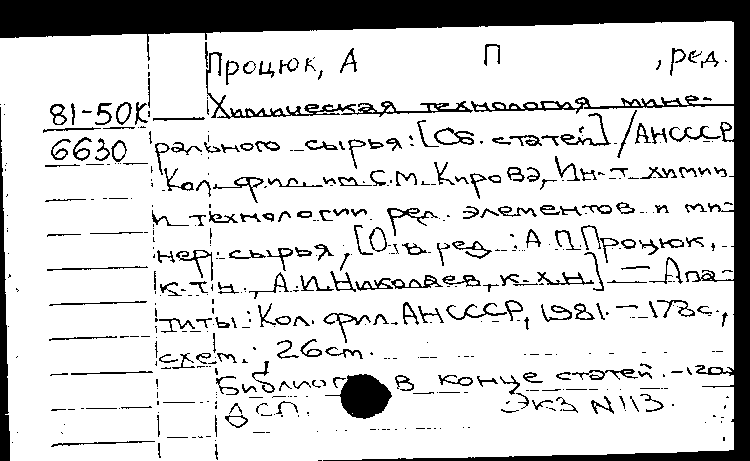 Процюк, А П , ред.
81-50К Химическая технология мине-
6630 рального сырья: [Сб. статей] / АНСССР
Кол. фил. им. С.М. Кирова, Ин-т химии
и технологии ред. элементов и ми-
нер. сырья, [Отв. ред.: А.П. Процюк,
к.т.н., А.И. Николаев, к.х.н.] — Апа-
титы: Кол. фил. АНСССР, 1981. — 178с.,
схем.; 26см.
Библиогр в конце статей. -
ДСП. Экз N 113.